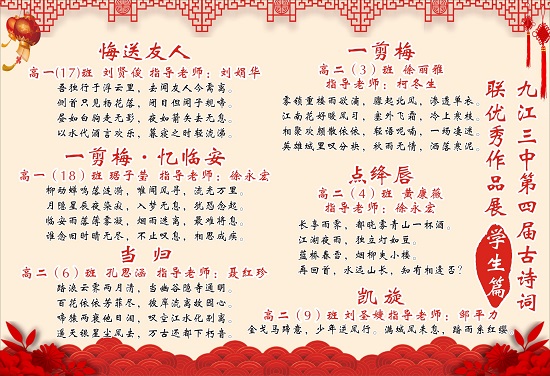 九江三中第四届古诗词
联优秀作品展
学生篇
悔送友人
高一(17)班 刘贤俊 指导老师：刘娟华
吾独行于浮云里，去闻友人今需离。
侧首只见杨花落，闭目但闻子规啼。
昼如白驹走无影，夜如箭矢去无息。
以水代酒言欢乐，暮寂之时轻流涕。
一剪梅·忆临安
高一（18）班 琚子莹 指导老师：徐永宏
柳动蝉鸣落涟漪，唯闻风寻，流无万里。
月隐星辰夜染寂，入梦无息，犹怨念起。
临安雨落薄雾凝，烟雨迷离，最难将息。
谁念回时晴无尽，不止叹息，相思成疾。
当归
高二（6）班 孔思涵 指导老师：聂红珍
踏浪云雾两月清，当幽谷隐寺通明。
百花依依芳菲尽，彼岸流离故园心。
啼猿两衷他日闻，叹空江水化别离。
遥天银星尘风去，万古还都下朽音。
一剪梅
高二（3）班 徐丽雅
指导老师：柯冬生
雾锁重楼雨欲滴，骤起北风，渗透单衣。
江南花好暖风习，塞外飞霜，冷上寒枝。
相聚欢颜散依依，轻语呢喃，一场凄迷。
英雄城里叹分袂，秋雨无情，洒落寒泥。
点绛唇
高二（4）班 黄康薇
指导老师：徐永宏
长亭雨雾，都晓雾青山一杯酒。
江湖夜雨，独立灯如豆。
蓝桥春昏，烟柳夹小楼。
再回首，水远山长，知有相逢否？
凯旋
高二（9）班 刘圣婕 指导老师：邹平力
金戈马蹄意，少年逆风行。满城风未息，踏雨系红缨。